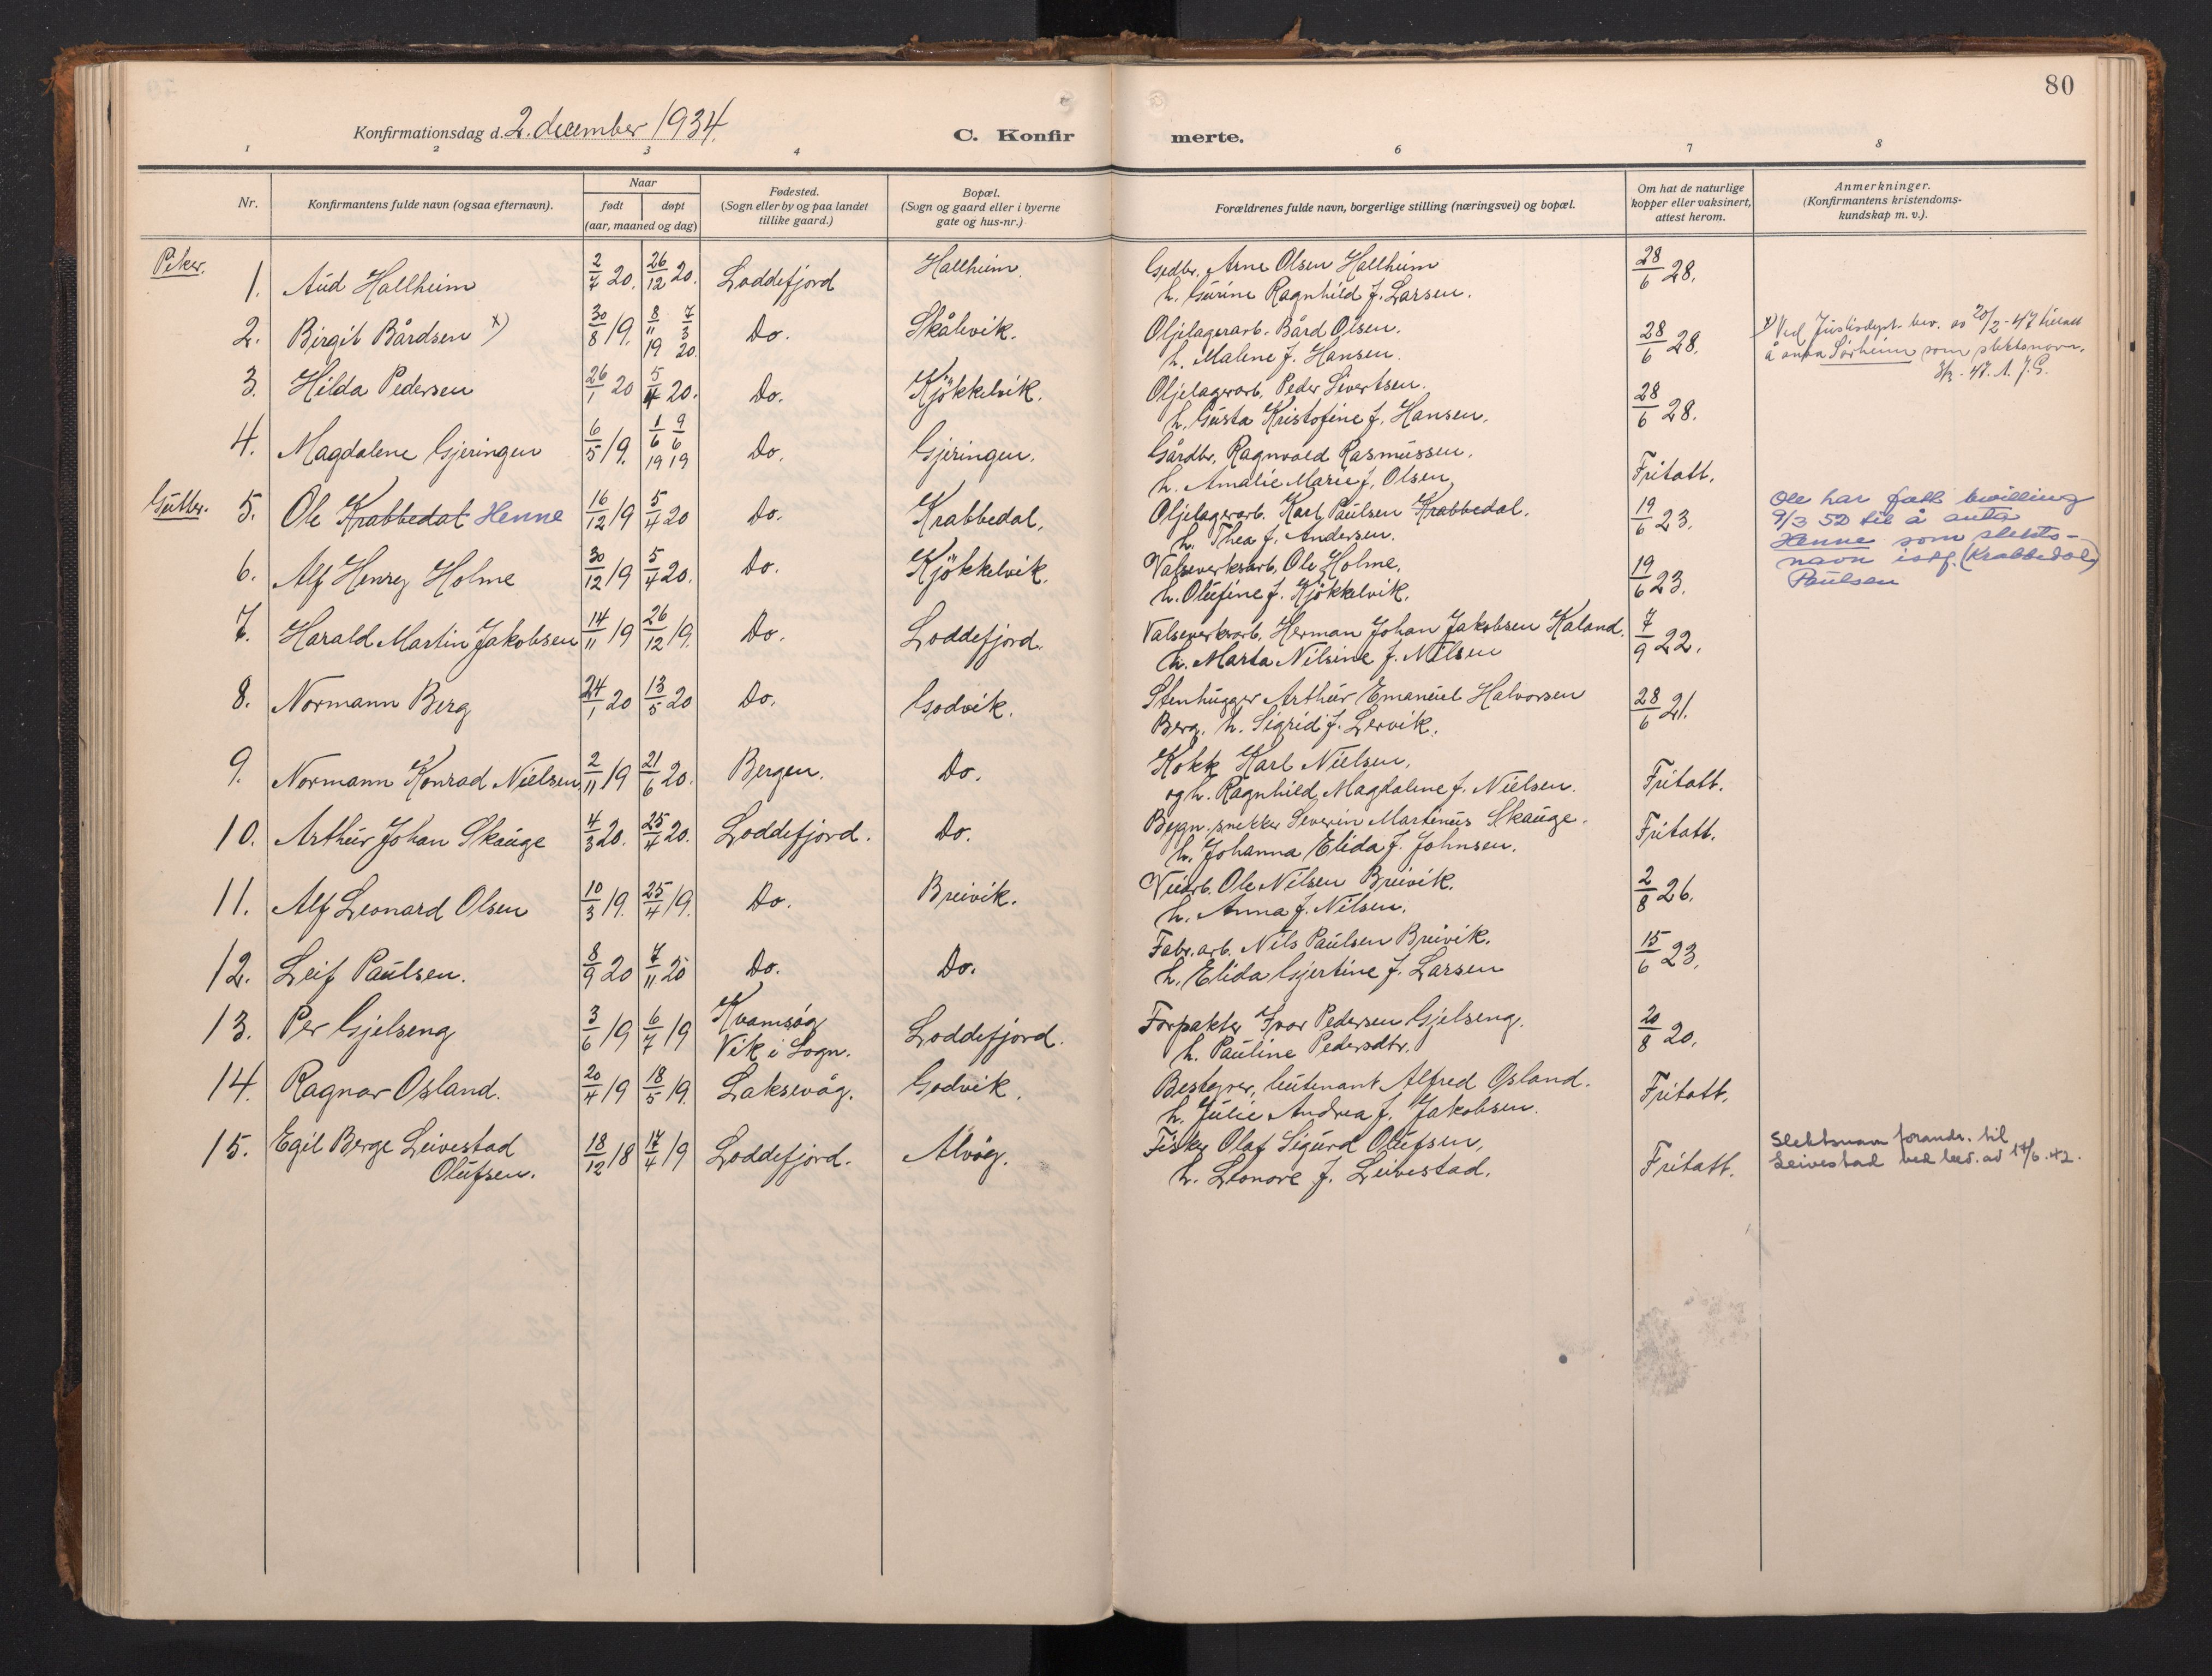 80
Konfirmationsdag d. 2. december 1934.
C. Konfirmerte.
1 2 3 4 6 7 8
Nr. | Konfirmantens fulde navn (ogsaa efternavn). | Naar født døpt (aar, maaned og dag) | Fødested. (Sogn eller by og paa landet tillike gaard.) | Bopæl. (Sogn og gaard eller i byerne gate og hus-nr.) | Forældrenes fulde navn, borgerlige stilling (næringsvei) og bopæl. | Om hat de naturlige kopper eller vaksinert, attest herom. | Anmerkninger. (Konfirmantens kristendomskundskap m. v.).
Piker.
1. Aud Hallheim | 2/4 20. | 26/12 20. | Loddefjord | Hallheim. | Gedbr. Arne Olsen Hallheim
h. Gurine Ragnhild f. Larsen. | 28/6 28.
2. Birgit Bårdsen x) | 30/8 19. | 8/11 19 7/3 20 | Do. | Skålevik. | Oljelagerarb. Bård Olsen.
h. Malene f. Hansen. | 28/6 28. | x) Ved Justisdept. bev. av 20/2-47 tillatt
å anta Sørheim som slektsnavn.
3/3-47. A. J. G.
3. Hilda Pedersen | 26/1 20 | 5/4 20. | Do. | Kjökkelvik. | Oljelagerarb. Peder Sivertsen.
h. Gusta Kristofine f. Hansen. | 28/6 28.
4. Magdalene Gjeringen | 6/5 19. | 1/6 19 9/6 19 | Do. | Gjeringen. | Gårdbr. Ragnvald Rasmussen.
h. Amalie Marie f. Olsen. | Fritatt.
Gutter.
5. Ole Krabbedal Henne | 16/12 19 | 5/4 20 | Do. | Krabbedal. | Oljelagerarb. Karl Paulsen Krabbedal.
h. Thea f. Andersen. | 19/6 23. | Ole har fått bevilling
9/3 52 til å anta
Henne som slekts-
navn istf. (Krabbedal)
Paulsen
6. Alf Henry Holme | 30/12 19 | 5/4 20. | Do. | Kjökkelvik. | Valseverksarb. Ole Holme.
h. Olufine f. Kjökkelvik. | 19/6 23.
7. Harald Martin Jakobsen | 14/11 19 | 26/12 19. | Do. | Loddefjord. | Valseverksarb. Herman Johan Jakobsen Kaland.
h. Marta Nilsine f. Nilsen | 7/9 22.
8. Normann Berg | 24/1 20 | 13/5 20 | Do. | Godvik. | Stenhugger Arthur Emanuel Halvorsen
Berg. h. Sigrid f. Lervik. | 28/6 21.
9. Normann Konrad Nielsen | 2/11 19 | 21/6 20. | Bergen. | Do. | Kokk Karl Nielsen.
og h. Ragnhild Magdalene f. Nielsen. | Fritatt.
10. Arthur Johan Skauge | 4/3 20. | 25/4 20. | Loddefjord. | Do. | Bygn. snekker Severin Martinus Skauge.
h. Johanna Elida f. Johnsen. | Fritatt.
11. Alf Leonard Olsen | 10/3 19. | 25/4 19. | Do. | Breivik. | Ole Nilsen Breivik.
h. Anna f. Nilsen. | 2/8 26.
12. Leif Paulsen. | 8/9 20 | 7/11 20 | Do. | Do. | Fabr. arb. Nils Paulsen Breivik.
h. Elida Gjertine f. Larsen | 15/6 23.
13. Per Gjelseng | 3/6 19 | 6/7 19 | Kvamsøy
Vik i Sogn. | Loddefjord. | Forpakter Ivar Pedersen Gjelseng.
h. Pauline Pedersdtr. | 20/8 20.
14. Ragnar Osland. | 20/4 19 | 18/5 19. | Laksevåg. | Godvik. | Bestyrer, leutenant Alfred Osland.
h. Julie Andrea f. Jakobsen. | Fritatt.
15. Egil Berge Leivestad
Olufsen. | 18/12 18 | 17/4 19 | Loddefjord. | Alvøy. | Fisker Olaf Sigurd Olufsen,
h. Leonore f. Leivestad. | Fritatt. | Slektsnavn forandr. til
Leivestad ved bev. av 17/6.42.